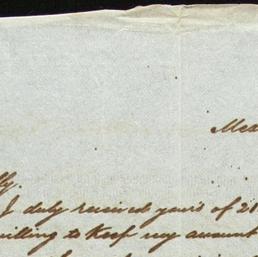 Mex
lly.
I duly received your's of 21
willing to keep my amount